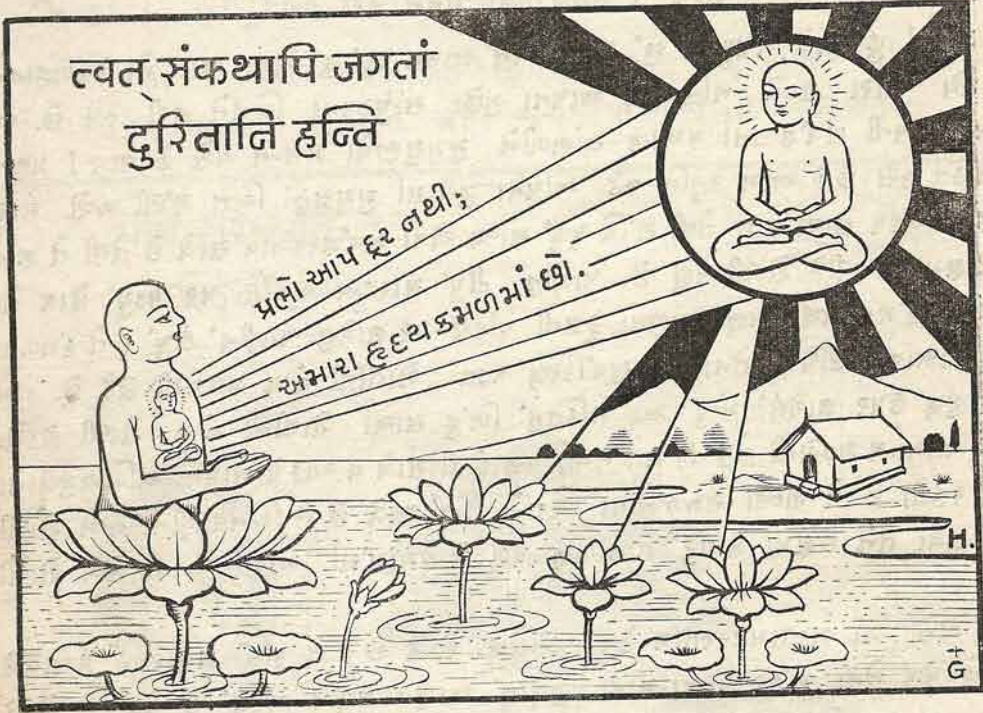 त्वत् संकथापि जगतां
दुरितानि हन्ति
પ્રભો આપ દૂર નથી;
અમારા હૃદયકમળમાં છો.
H.
G